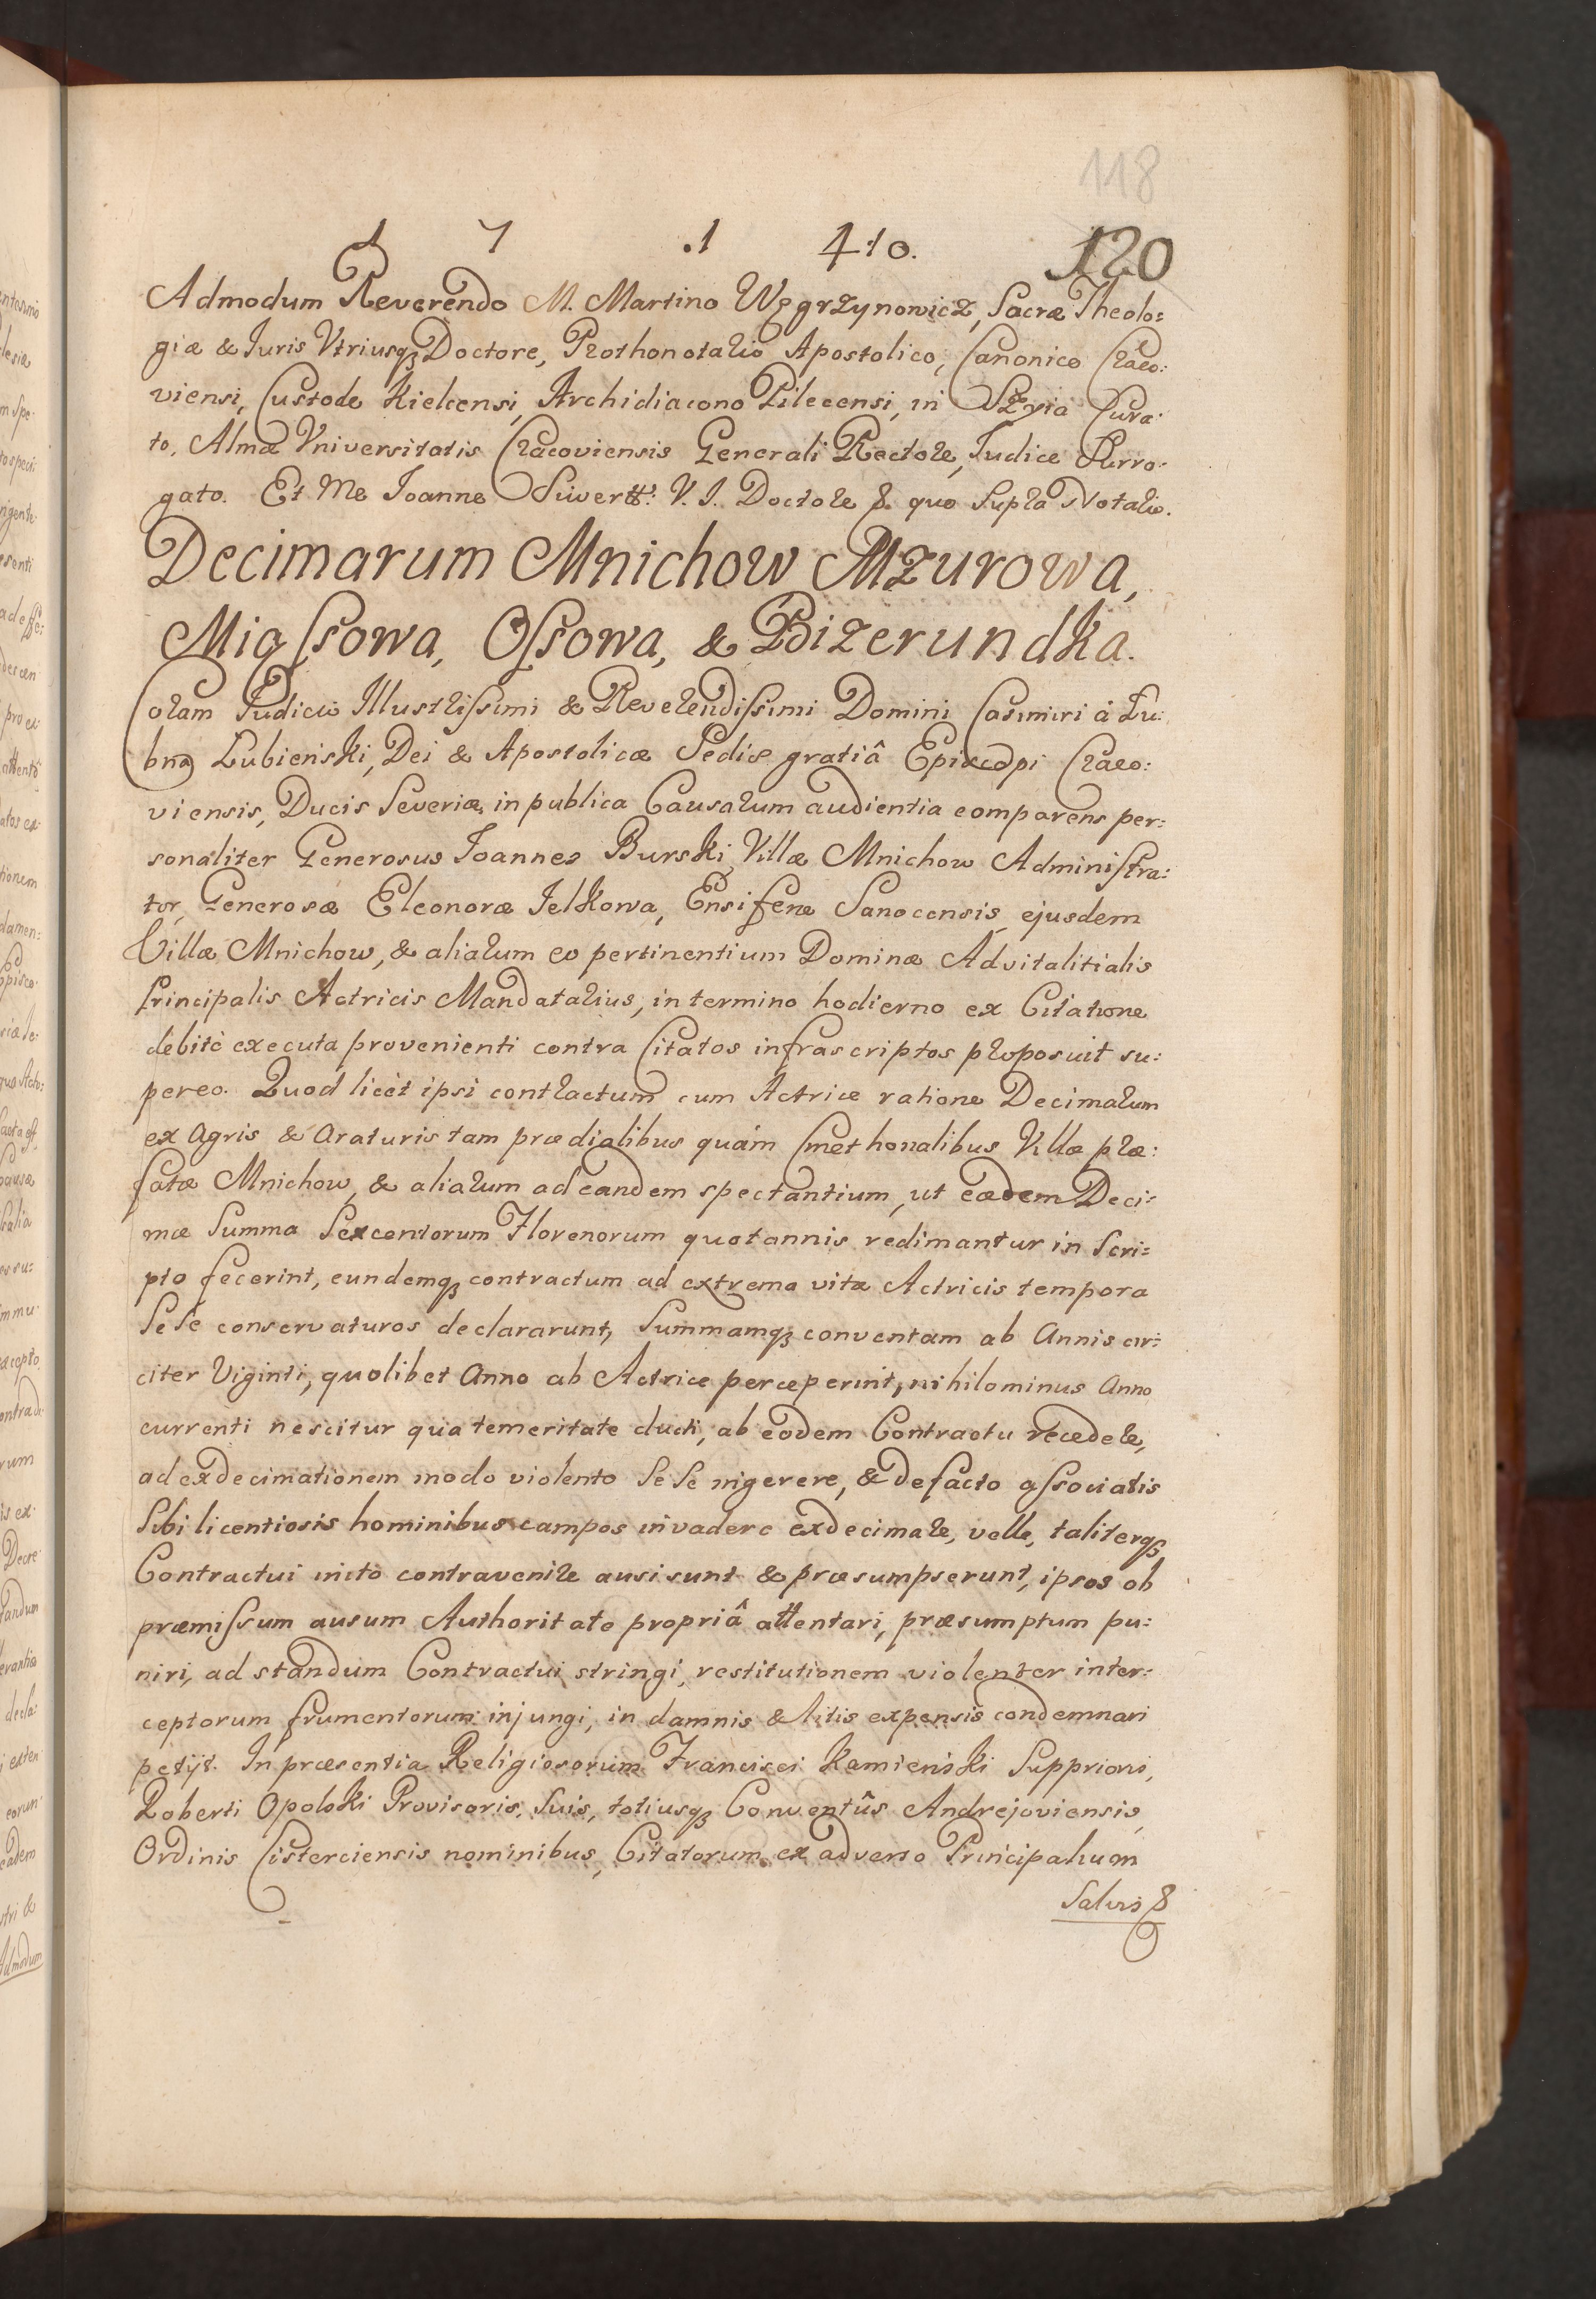 118
1 7 .1 410. 120
Admodum Reverendo M. Martino Węgrzynowicz, Sacræ Theolo:
giæ & Iuris Vtriusq; Doctore, Prothonotario Apostolico, Canonico Craco:
viensi, Custode Kielcensi, Archidiacono Pilecensi, in Szria Cura:
to, Almæ Vniversitatis Cracoviensis Generali Rectore, Iudice Surro:
gato. Et Me Ioanne Siwertt: V. I. Doctore & quo supra Notario.
Decimarum Mnichow Mzurowa,
Miąssowa, Ossowa, & Bizerundka.
Coram Iudicio Illustrissimi & Reverendissimi Domini Casimiri à Łu:
bna Łubieński, Dei & Apostolicæ Sedis gratiâ Episcopi Craco:
viensis, Ducis Severiæ, in publica Causarum audientia comparens per:
sonaliter Generosus Ioannes Burski Villæ Mnichow Administra:
tor, Generosæ Eleonoræ Ielkowa, Ensiferæ Sanocensis, ejusdem
Villæ Mnichow, & aliarum eo pertinentium Dominæ Advitalitialis
Principalis Actricis Mandatarius, in termino hodierno ex Citatione
debitè executa provenienti contra Citatos infrascriptos proposuit su:
per eo. Quod licèt ipsi contractum cum Actrice ratione Decimarum
ex Agris & Araturis tam prædialibus quàm Cmethonalibus Villæ præ:
fatæ Mnichow, & aliarum ad eandem spectantium, ut eædem Deci:
mæ Summa Sexcentorum Florenorum quotannis redimantur in Scri:
pto fecerint, eundemq; contractum ad extrema vitæ Actricis tempora
Se Se conservaturos declararunt, Summamq; conventam ab Annis cir:
citer Viginti, quolibet Anno ab Actrice perceperint, nihilominus Anno
currenti nescitur qua temeritate ducti, ab eodem Contractu recedere,
ad exdecimationem modo violento Se Se ingerere, & de facto associatis
Sibi licentiosis hominibus campos invadere exdecimare, velle, taliterq;
Contractui inito contravenire ausi sunt & præsumpserunt, ipsos ob
præmissum ausum Authoritate propriâ attentari, præsumptum pu:
niri, ad standum Contractui stringi, restitutionem violenter inter:
ceptorum frumentorum injungi, in damnis & litis expensis condemnari
petijt. In præsentia Religiosorum Francisci Kamieński Supprioris,
Roberti Opolski Provisoris, Suis, totiusq; Conventûs Andrejoviensis,
Ordinis Cisterciensis nominibus, Citatorum ex adverso Principalium
Salvis &